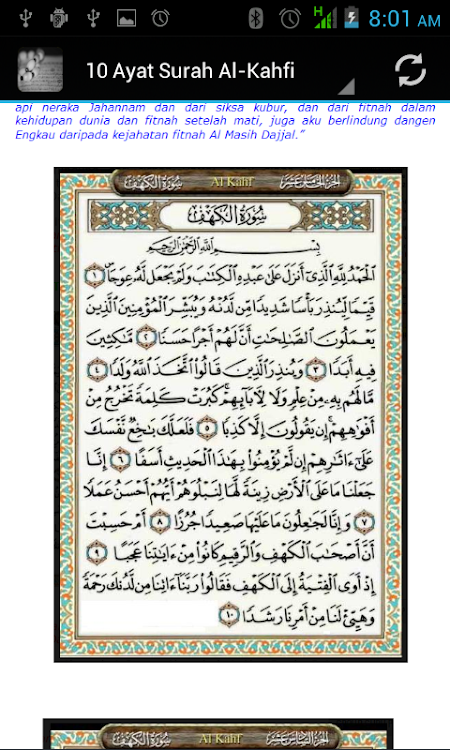 8:01 AM
10 Ayat Surah Al-Kahfi
api neraka Jahannam dan dari siksa kubur, dan dari fitnah dalam
kehidupan dunia dan fitnah setelah mati, juga aku berlindung dangen
Engkau daripada kejahatan fitnah Al Masih Dajjal."
سُورَةُ الكَهْفِ Al Kahf الجزء الخامس عشر
سُورَةُ الكَهْفِ
بِسْمِ اللَّهِ الرَّحْمَٰنِ الرَّحِيمِ
الْحَمْدُ لِلَّهِ الَّذِي أَنزَلَ عَلَىٰ عَبْدِهِ الْكِتَابَ وَلَمْ يَجْعَل لَّهُ عِوَجًا ۜ ١
قَيِّمًا لِّيُنذِرَ بَأْسًا شَدِيدًا مِّن لَّدُنْهُ وَيُبَشِّرَ الْمُؤْمِنِينَ الَّذِينَ
يَعْمَلُونَ الصَّالِحَاتِ أَنَّ لَهُمْ أَجْرًا حَسَنًا ٢ مَّاكِثِينَ
فِيهِ أَبَدًا ٣ وَيُنذِرَ الَّذِينَ قَالُوا اتَّخَذَ اللَّهُ وَلَدًا ٤
مَّا لَهُم بِهِ مِنْ عِلْمٍ وَلَا لِآبَائِهِمْ ۚ كَبُرَتْ كَلِمَةً تَخْرُجُ مِنْ
أَفْوَاهِهِمْ ۚ إِن يَقُولُونَ إِلَّا كَذِبًا ٥ فَلَعَلَّكَ بَاخِعٌ نَّفْسَكَ
عَلَىٰ آثَارِهِمْ إِن لَّمْ يُؤْمِنُوا بِهَٰذَا الْحَدِيثِ أَسَفًا ٦ إِنَّا
جَعَلْنَا مَا عَلَى الْأَرْضِ زِينَةً لَّهَا لِنَبْلُوَهُمْ أَيُّهُمْ أَحْسَنُ عَمَلًا
٧ وَإِنَّا لَجَاعِلُونَ مَا عَلَيْهَا صَعِيدًا جُرُزًا ٨ أَمْ حَسِبْتَ
أَنَّ أَصْحَابَ الْكَهْفِ وَالرَّقِيمِ كَانُوا مِنْ آيَاتِنَا عَجَبًا ٩
إِذْ أَوَى الْفِتْيَةُ إِلَى الْكَهْفِ فَقَالُوا رَبَّنَا آتِنَا مِن لَّدُنكَ رَحْمَةً
وَهَيِّئْ لَنَا مِنْ أَمْرِنَا رَشَدًا ١٠
سُورَةُ الكَهْفِ Al Kahf الجزء الخامس عشر